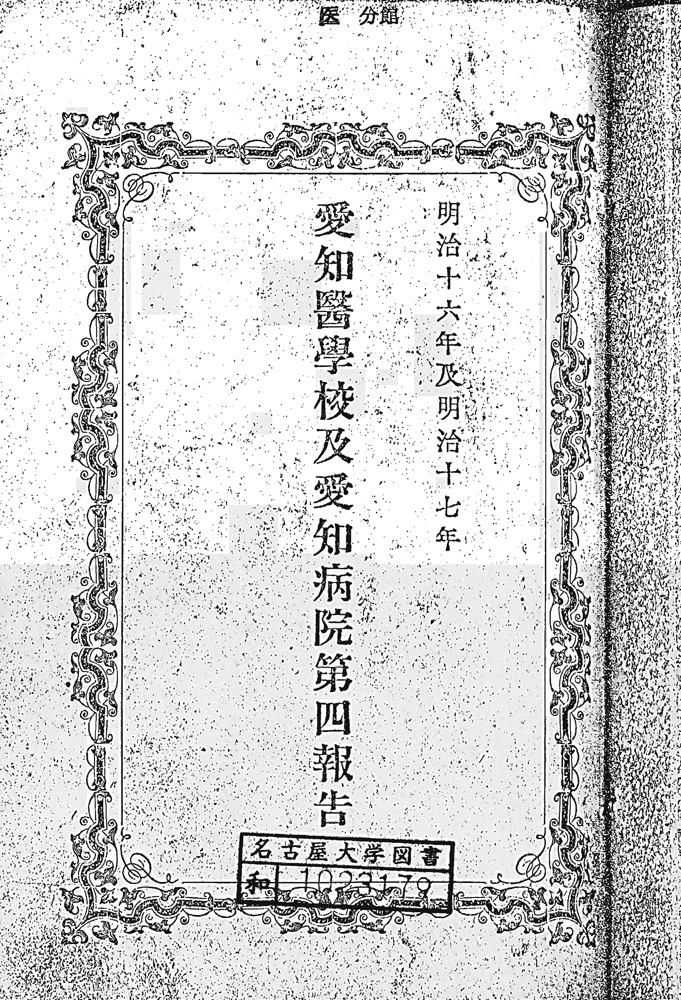 医 分館
明治十六年及明治十七年
愛知醫學校及愛知病院第四報告
名古屋大学図書
和 1023179